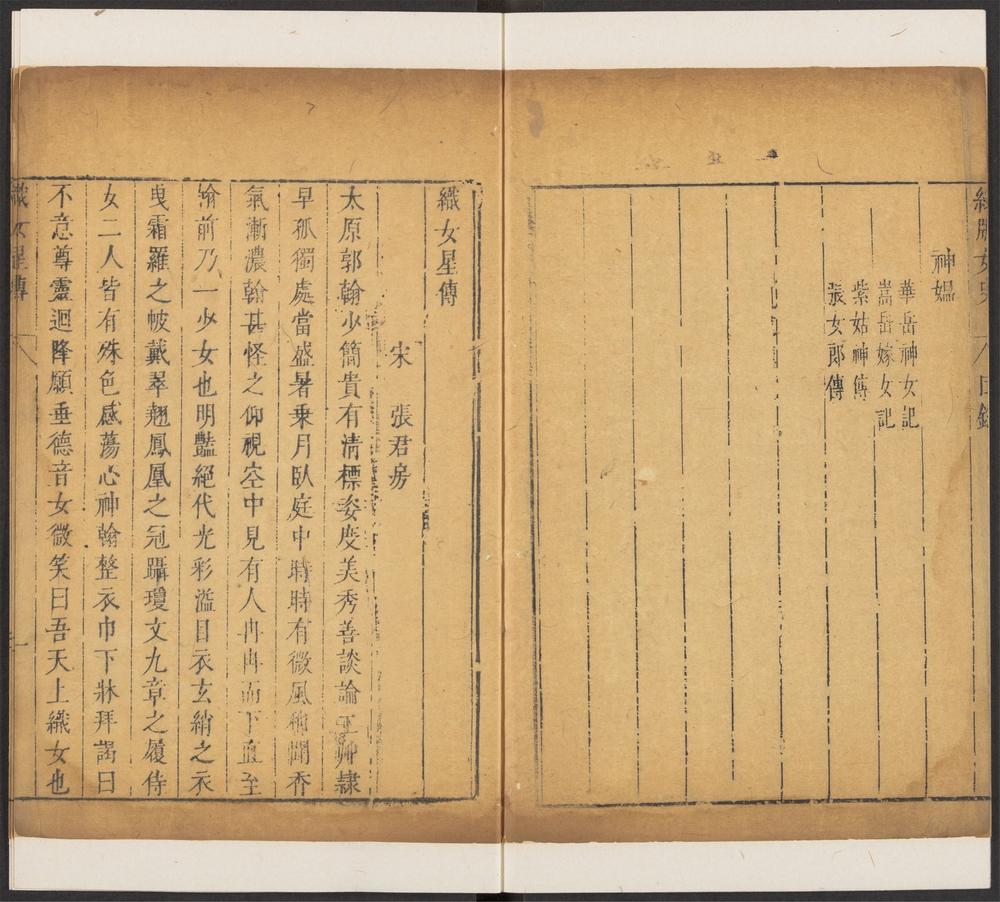 綠牕女史 八 目錄
神媼
華岳神女記
嵩岳嫁女記
紫姑神傳
張女郎傳
織女星傳
宋 張君房
太原郭翰少簡貴有清標姿度美秀善談論工艸隷
早孤獨處當盛暑乗月臥庭中時時有微風稍聞香
氣漸濃翰甚怪之仰視空中見有人冉冉而下直至
翰前乃一少女也明豔絕代光彩溢目衣玄綃之衣
曳霜羅之帔戴翠翹鳳凰之冠躡瓊文九章之履侍
女二人皆有殊色感蕩心神翰整衣巾下牀拜謁曰
不意尊靈迴降願垂德音女微笑曰吾天上織女也
織女星傳 八 一